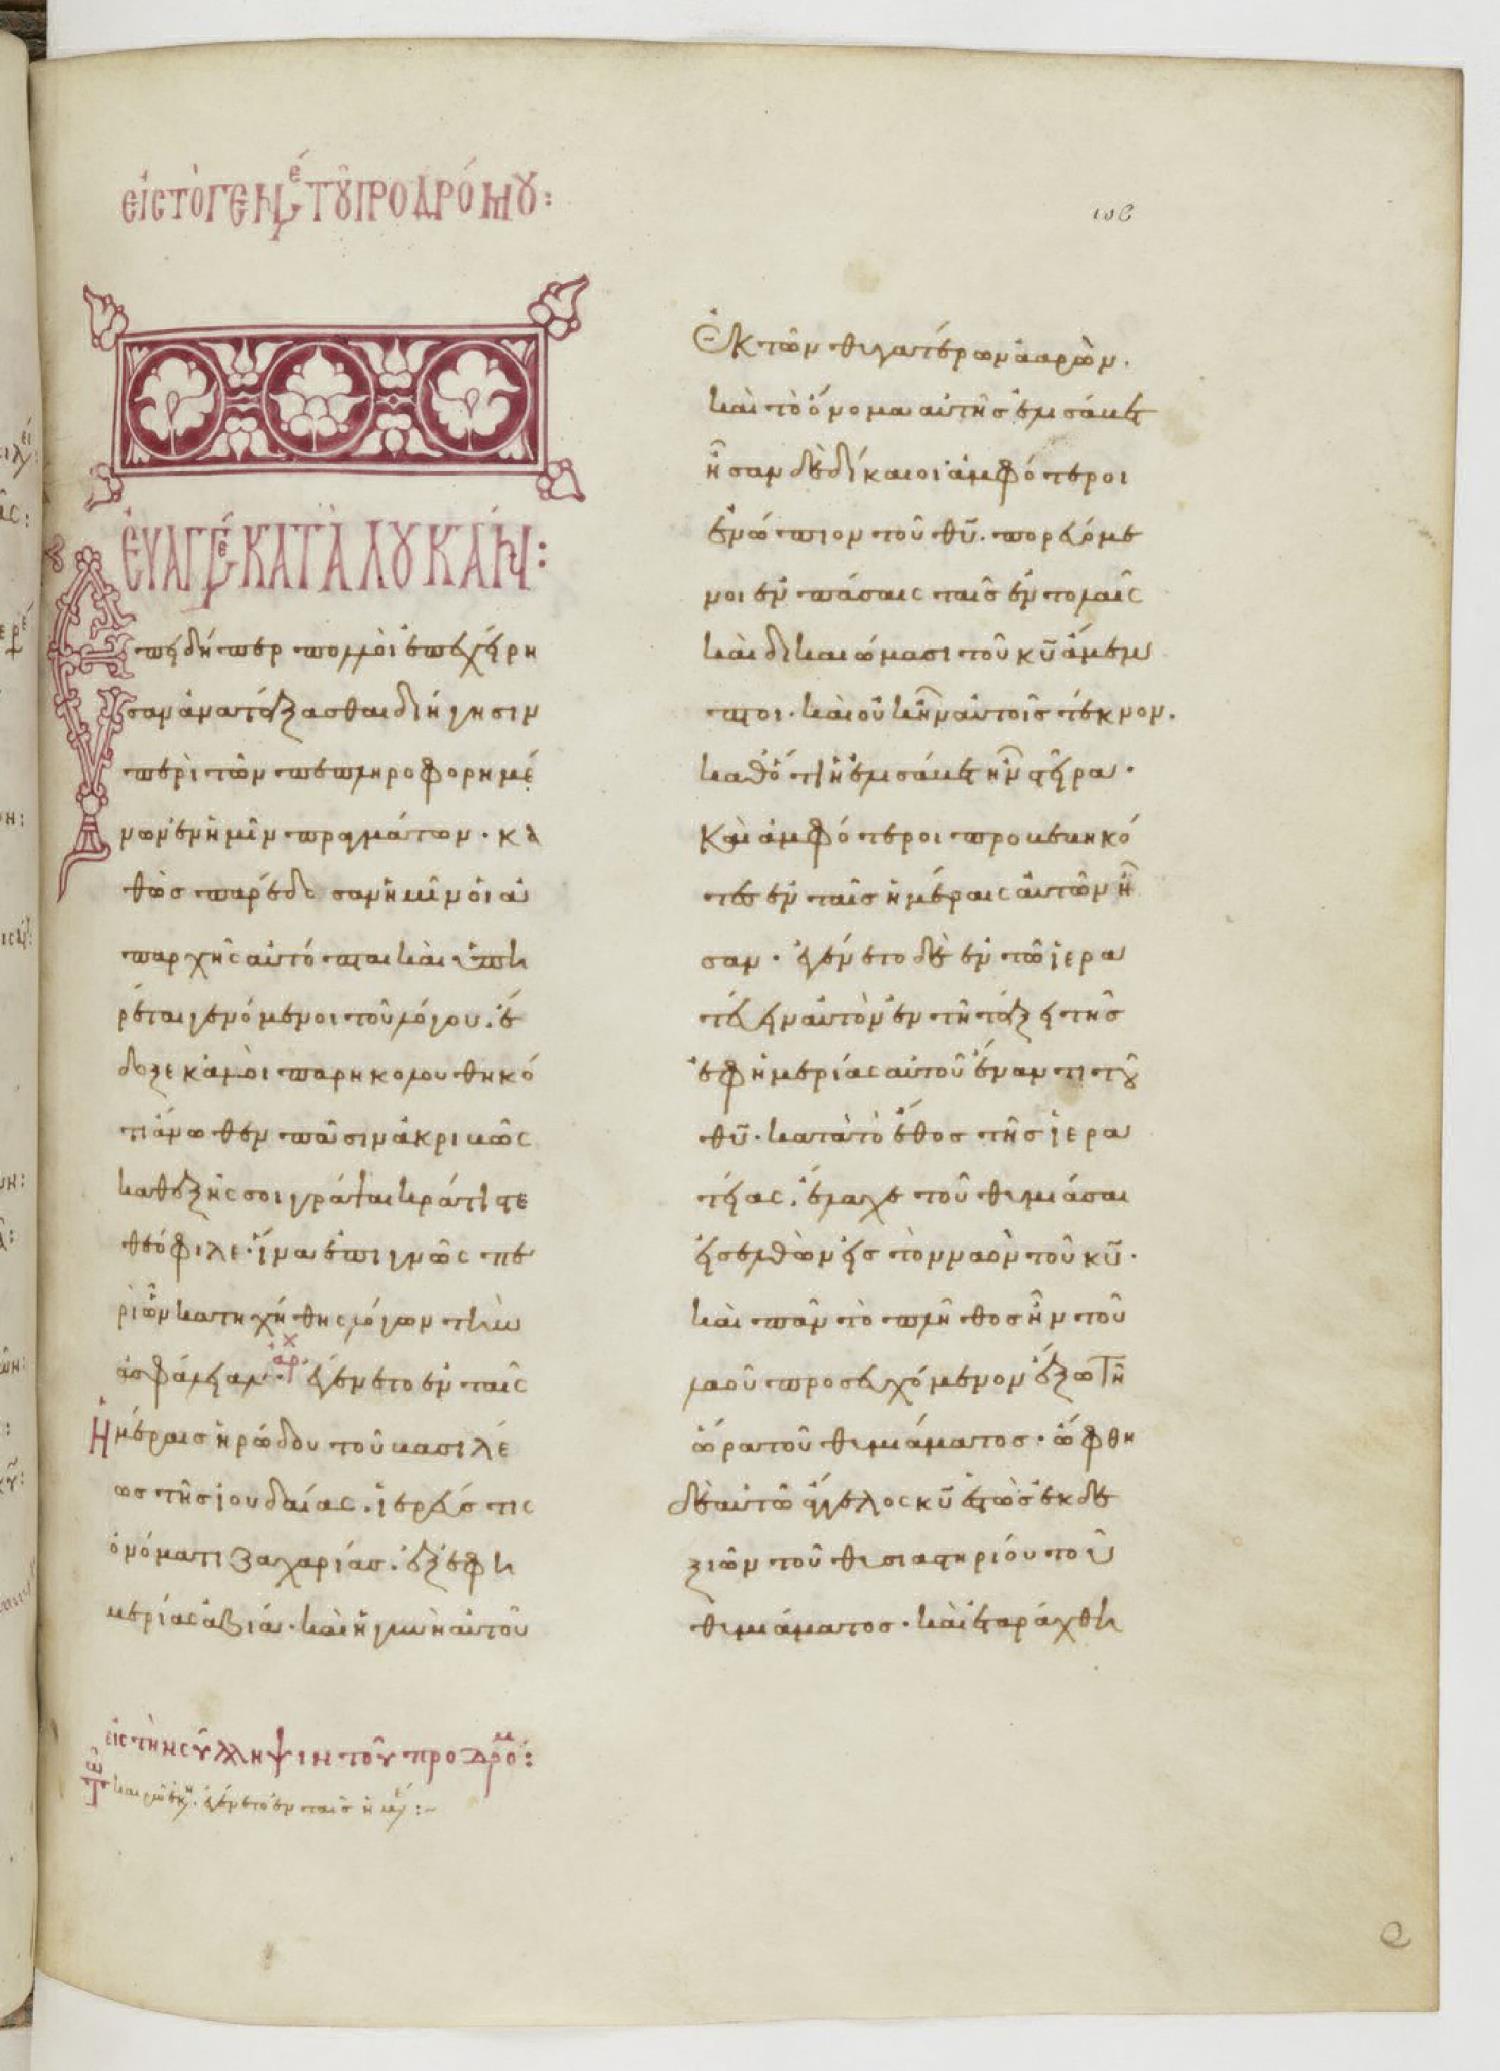 εἰς τὸ γενέ τοῦ προδρόμου:
ἐυαγγέ κατὰ λουκάν:
Ἐπειδήπερ πολλοὶ ἐπεχείρη
σαν ἀνατάξασθαι διήγησιν
περὶ τῶν πεπληροφορημέ
νων ἐν ἡμῖν πραγμάτων· κα
θὼς παρέδοσαν ἡμῖν ὁι ἀ
παρχῆς αὐτόπται καὶ ὑπη
ρέται γενόμενοι τοῦ λόγου. ἔ
δοξε κἀμοὶ παρηκολουθηκό
τι ἄνωθεν πᾶσιν ἀκριβῶς
καθεξῆς σοι γράψαι κράτιστε
θεόφιλε· ἵνα ἐπιγνῶς πε
ρὶ ὧν κατηχήθης λόγων τὴν
ἀρχ
ἀσφάλειαν· ἐγένετο ἐν ταῖς
Ἡμέραις ἡρώδου τοῦ βασιλέ
ως τῆς ἰουδαίας. ἱερεύς τις
ὀνόματι ζαχαρίας. ἐξ ἐφη
μερίας ἀβιά· καὶ ἡ γυνὴ αὐτοῦ
εἰς τὴν σύλληψιν τοῦ προδρόμ:
τῶ καιρῶ ἐκείν. ἐγένετο ἐν ταῖς ἡμέ:~
Ἐκ τῶν θυγατέρων ἀαρὼν.
καὶ τὸ ὄνομα αὐτῆς ἐλισάβετ
ἦσαν δὲ δίκαιοι ἀμφότεροι
ἐνώπιον τοῦ θῦ. πορευόμε
νοι ἐν πάσαις ταῖς ἐντολαῖς
καὶ δικαιώμασι τοῦ κῦ ἄμεμ
πτοι· καὶ οὐκ ἦν αὐτοῖς τέκνον.
καθότι ἡ ἐλισάβετ ἦν στεῖρα·
Καὶ ἀμφότεροι προβεβηκό
τες ἐν ταῖς ἡμέραις αὐτῶν ἦ
σαν· ἐγένετο δὲ ἐν τῶ ἱερα
τεύειν αὐτὸν ἐν τῆ τάξει τῆς
ἐφημερίας αὐτοῦ ἔναντι τοῦ
θῦ· κατὰ τὸ ἔθος τῆς ἱερα
τείας. ἔλαχε τοῦ θυμιάσαι
εἰσελθὼν εἰς τὸν ναὸν τοῦ κῦ·
καὶ πᾶν τὸ πλῆθος ἦν τοῦ
λαοῦ προσευχόμενον ἔξω τῆ
ὥρα τοῦ θυμιάματος· ὤφθη
δὲ αὐτῶ ἄγγελος κῦ ἑστὼς ἐκ δε
ξιῶν τοῦ θυσιαστηρίου τοῦ
θυμιάματος· καὶ ἐταράχθη